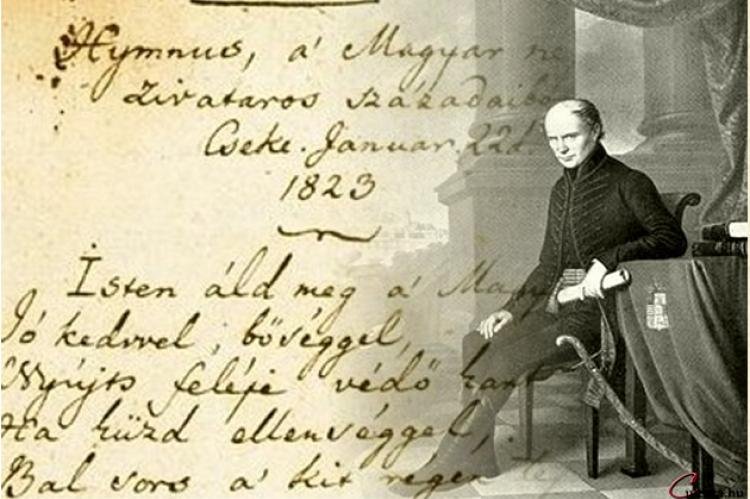 Hymnus, a' Magyar ne
zivataros századaibó
Cseke. Januar. 22d.
1823
Isten áld meg a' Magy
Jó kedvvel, bőséggel,
Nyújts feléje védő kart
Ha küzd ellenséggel,
Bal sors a' kit régen